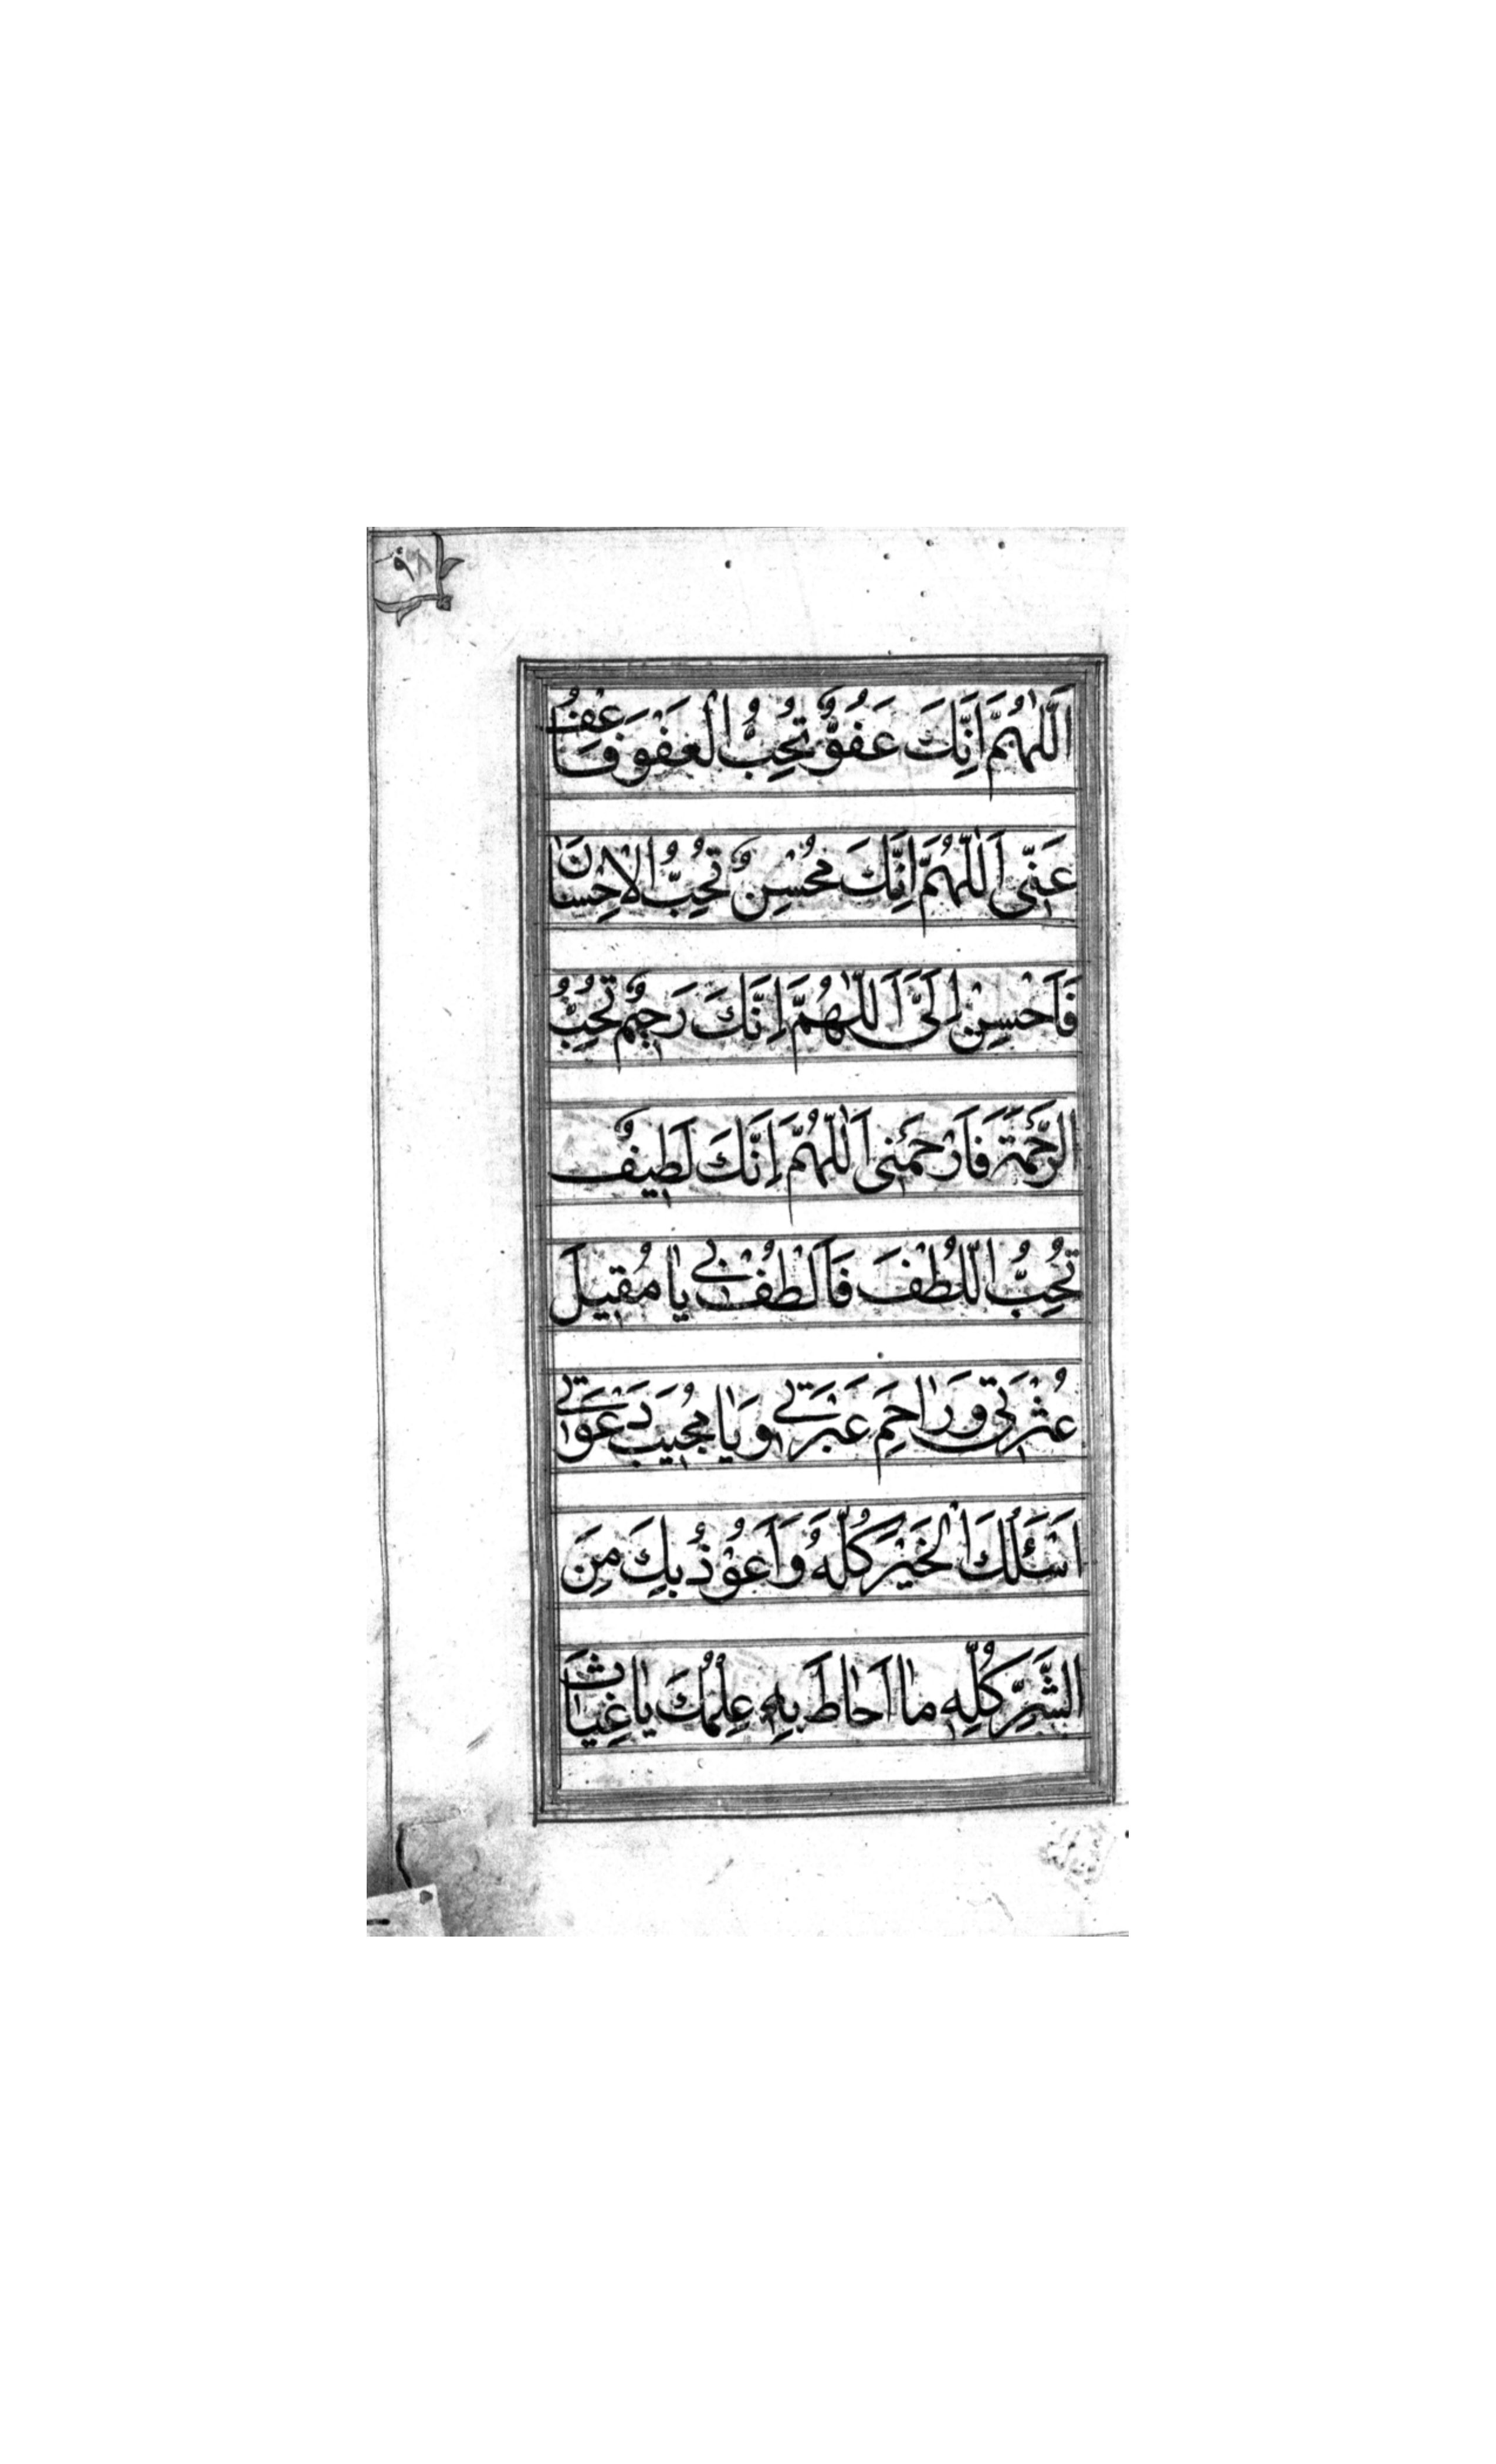 اَللّٰهُمَّ اِنَّكَ عَفُوٌّ تُحِبُّ الْعَفْوَ فَاعْفُ
عَنّى اَللّٰهُمَّ اِنَّكَ مُحْسِنٌ تُحِبُّ الْاِحْسانَ
فَاَحْسِنْ اِلَىَّ اَللّٰهُمَّ اِنَّكَ رَحيمٌ تُحِبُّ
الرَّحْمَةَ فَارْحَمْنى اَللّٰهُمَّ اِنَّكَ لَطيفٌ
تُحِبُّ اللُّطْفَ فَالْطُفْ بى يا مُقيلَ
عُثْرَتى وَ راحِمَ عَبْرَتى وَ يا مُجيبَ دَعْوَتى
اَسْئَلُكَ الْخَيْرَ كُلَّهُ وَ اَعُوْذُ بِكَ مِنَ
الشَّرِّ كُلِّهِ ما اَحاطَ بِهِ عِلْمُكَ يا غِياثَ